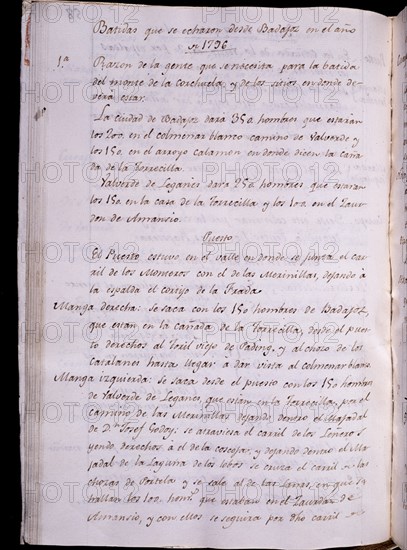 Batidas que se echaron desde Badajoz en el año
de 1796
1.a Razon de la gente que se necesita para la batida
del monte de la Corchuela y de los sitios en donde de
verá estar.
La ciudad de Badajoz dará 350 hombres que estarán
los 200 en el colmenar blanco camino de Valverde y
los 150 en el arroyo calamon en donde dicen la caña
da de la Torrecilla.
Valverde de Leganes dará 250 hombres que estaran
los 150 en la casa de la Torrecilla y los 100 en el Lavar
don de Arransio.
Puesto
El Puesto estuvo en el valle en donde se junta el car
ril de los Moneros con el de las Merinillas, dejando á
la espalda el cortijo de la Frada
Manga derecha: se saca con los 150 hombres de Badajoz,
que estan en la cañada de la Torrecilla, desde el pues
to derechos al Tosil viejo de Pading. y al chozo de los
Catalanes hasta llegar à dar vista al colmenar blanco
Manga izquierda: se saca desde el puesto con los 150 hombres
de Valverde de Leganes que estan en la Torrecilla, por el
camino de las Merinillas dejando dentro el Majadal
de D.n Josef Godoy: se atraviesa el carril de los Leneros
yendo derechos à el de la coscoja, y dejando dentro el Ma
jadal de la Laguna de los lobos se cruza el carril de las
chozas de Portela y se sale al de las Lanas, en que se
hallan los 100 hom.s que estaban en el Lavadar de
Arransio, y con ellos se seguira por dho carril